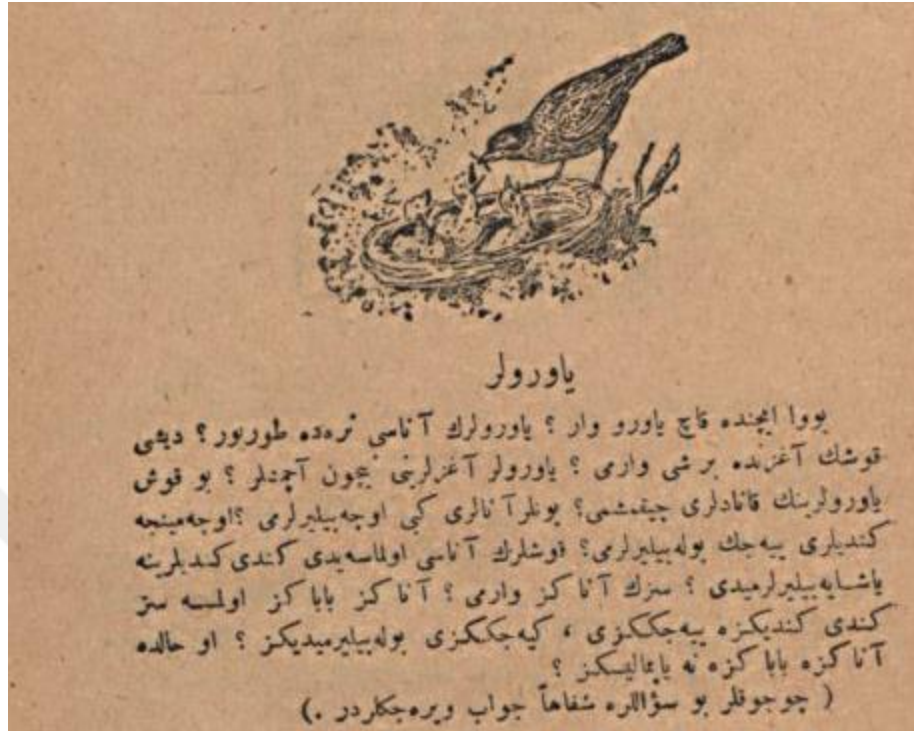 ياورولر
يووا ایچنده قاچ ياورو وار ؟ ياورولرك آناسی نره‌ده طورييور ؟ ديشی
قوشك آغزنده بر شی وارمی ؟ ياورولر آغزلرينی نیچون آچمشلر ؟ بو قوش
ياورولرينك قانادلری چيقمشمی؟ بونلر آنالری كبی اوچه‌بيليرلرمی ؟ اوچه‌مينجه
كنديلری ييه‌جك بوله‌بيليرلرمی؟ قوشلرك آناسی اولماسه‌يدی كندی كنديلرينه
ياشايه‌بيليرلرميدی ؟ سزك آناكز وارمی ؟ آناكز باباكز اولمسه سز
كندی كنديكزه ييه‌جككزی ، كيه‌جككزی بوله‌بيليرميديكز ؟ او حالده
آناكزه باباكزه نه ياپماليسكز ؟
( چوجوقلر بو سؤاللره شفاهاً جواب ويره‌جكلردر .)